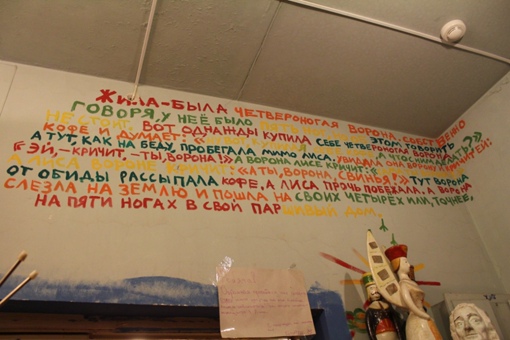 ЖИЛА-БЫЛА ЧЕТВЕРОНОГАЯ ВОРОНА. СОБСТВЕННО
ГОВОРЯ, У НЕЁ БЫЛО ПЯТЬ НОГ, НО ОБ ЭТОМ ГОВОРИТЬ
НЕ СТОИТ. ВОТ ОДНАЖДЫ КУПИЛА СЕБЕ ЧЕТВЕРОНОГАЯ ВОРОНА
КОФЕ И ДУМАЕТ: «
А ТУТ, КАК НА БЕДУ, ПРОБЕГАЛА МИМО ЛИСА. УВИДАЛА ОНА ВОРОНУ И КРИЧИТ ЕЙ:
«ЭЙ,—КРИЧИТ—ТЫ, ВОРОНА!» А ВОРОНА ЛИСЕ КРИЧИТ:
А ЛИСА ВОРОНЕ КРИЧИТ: «А ТЫ, ВОРОНА, СВИНЬЯ!» ТУТ ВОРОНА
ОТ ОБИДЫ РАССЫПАЛА КОФЕ. А ЛИСА ПРОЧЬ ПОБЕЖАЛА. А ВОРОНА
СЛЕЗЛА НА ЗЕМЛЮ И ПОШЛА НА СВОИХ ЧЕТЫРЕХ ИЛИ, ТОЧНЕЕ,
НА ПЯТИ НОГАХ В СВОЙ ПАРШИВЫЙ ДОМ.